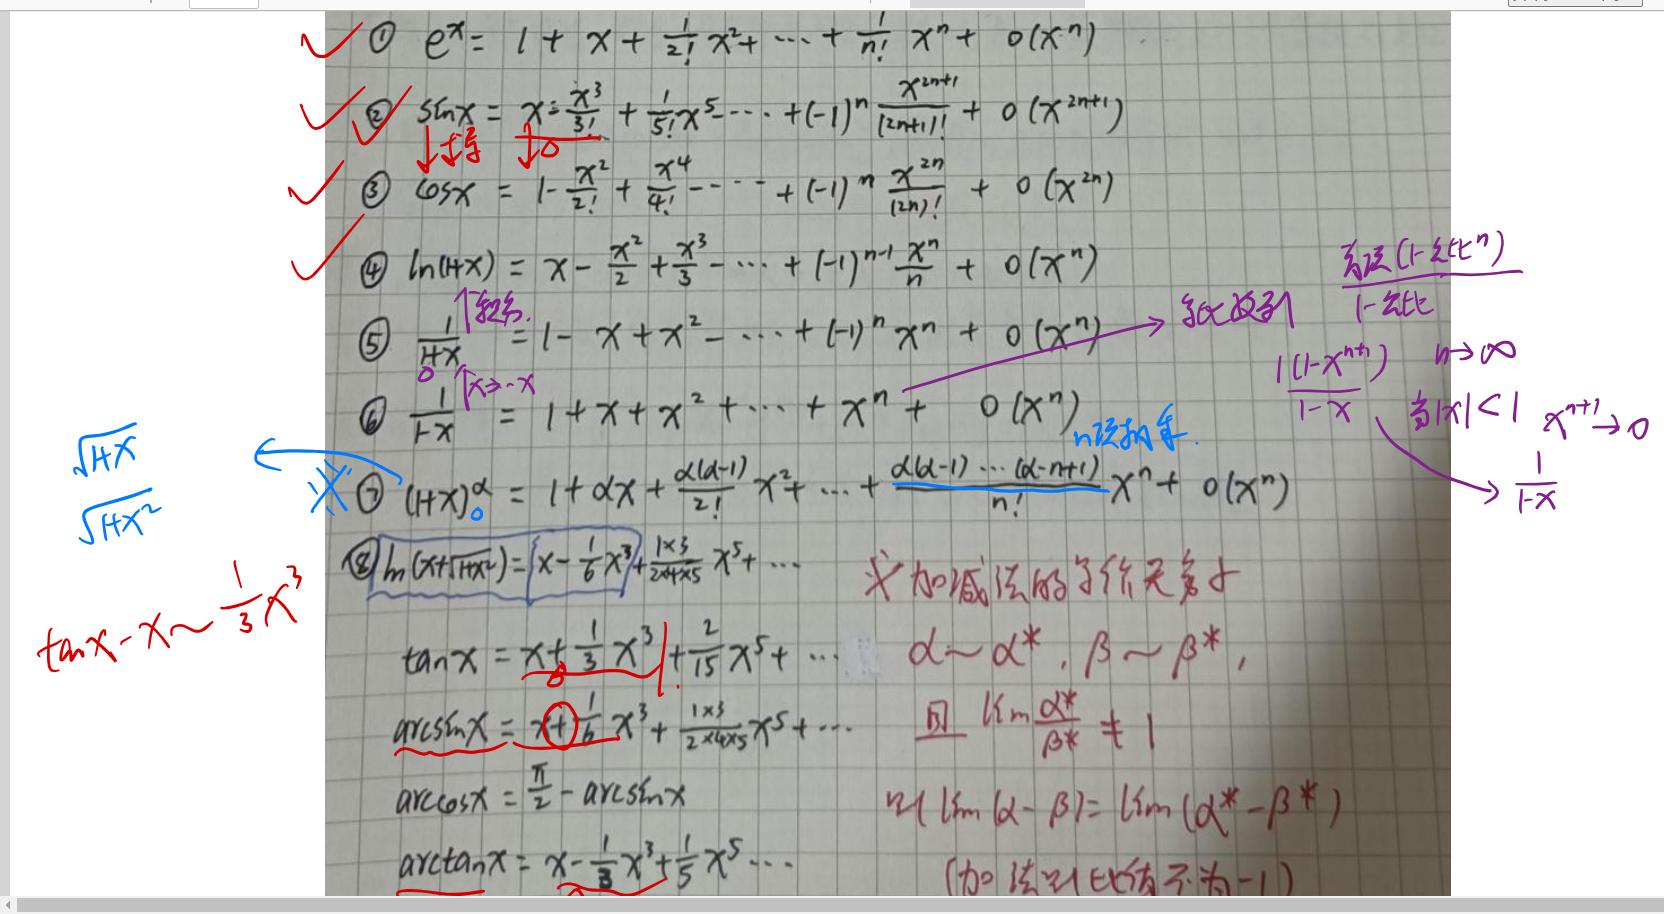 ① eˣ = 1 + x + 1/2! x² + ⋯ + 1/n! xⁿ + o(xⁿ)
② sinx = x - x³/3! + 1/5! x⁵ - ⋯ + (-1)ⁿ x²ⁿ⁺¹/(2n+1)! + o(x²ⁿ⁺¹)
↓求导 ↓
③ cosx = 1 - x²/2! + x⁴/4! - ⋯ + (-1)ⁿ x²ⁿ/(2n)! + o(x²ⁿ)
④ ln(1+x) = x - x²/2 + x³/3 - ⋯ + (-1)ⁿ⁻¹ xⁿ/n + o(xⁿ)
首项(1-公比ⁿ)/1-公比
↑积分
⑤ 1/1+x = 1 - x + x² - ⋯ + (-1)ⁿ xⁿ + o(xⁿ) → 等比数列
↑x→-x
1(1-xⁿ⁺¹)/1-x n→∞
⑥ 1/1-x = 1 + x + x² + ⋯ + xⁿ + o(xⁿ)
当|x|<1 xⁿ⁺¹→0
→ 1/1-x
n项相乘
√1+x
√1+x²
※ ⑦ (1+x)^α = 1 + αx + α(α-1)/2! x² + ⋯ + α(α-1)⋯(α-n+1)/n! xⁿ + o(xⁿ)
⑧ ln(x+√1+x²) = x - 1/6 x³ + 1×3/2×4×5 x⁵ + ⋯
tanx - x ~ 1/3 x³
tanx = x + 1/3 x³ + 2/15 x⁵ + ⋯
arcsinx = x + 1/6 x³ + 1×3/2×4×5 x⁵ + ⋯
arccosx = π/2 - arcsinx
arctanx = x - 1/3 x³ + 1/5 x⁵ ⋯
※ 加减法的等价无穷小
α~α*, β~β*,
且 lim α*/β* ≠ 1
则 lim(α-β) = lim(α*-β*)
(加法则比值不为-1)